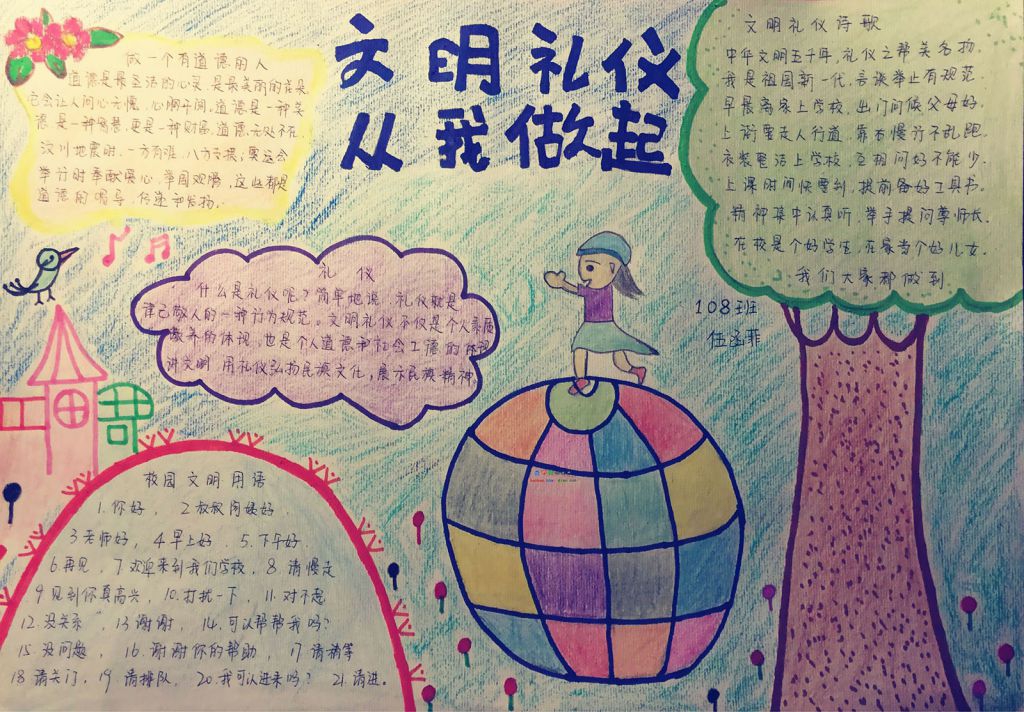 文明礼仪
从我做起
做一个有道德的人
道德是最圣洁的心灵,是最美丽的花朵
它会让人问心无愧,心胸宽阔,道德是一种美
德,是一种智慧,更是一种财富,道德无处不在
汶川地震时,一方有难,八方支援,奥运会
举行时奉献爱心,举国欢腾,这些都是
道德的倡导,传递和发扬.
礼 仪
什么是礼仪呢?简单地说,礼仪就是
律己敬人的一种行为规范。文明礼仪不仅是个人素质
教养的体现,也是个人道德和社会工德的体现
讲文明 用礼仪弘扬民族文化,展示民族精神。
文明礼仪诗歌
中华文明五千年,礼仪之帮美名扬.
我是祖国新一代,言谈举止有规范.
早晨离家上学校,出门问候父母好.
上街要走人行道,靠右慢行不乱跑.
衣装整洁上学校,互相问好不能少.
上课时间快要到,提前备好工具书.
精神集中认真听,举手提问尊师长.
在校是个好学生,在家当个好儿女.
我们大家都做到
108班
伍函菲
校园文明用语
1.你好, 2叔叔阿姨好.
3老师好, 4早上好, 5.下午好
6.再见, 7欢迎来到我们学校, 8 请慢走
9见到你真高兴, 10.打扰一下, 11.对不起
12.没关系, 13谢谢, 14.可以帮帮我吗?
15.没问题, 16.谢谢你的帮助, 17 请稍等
18请关门, 19 请排队, 20.我可以进来吗? 21.请进。